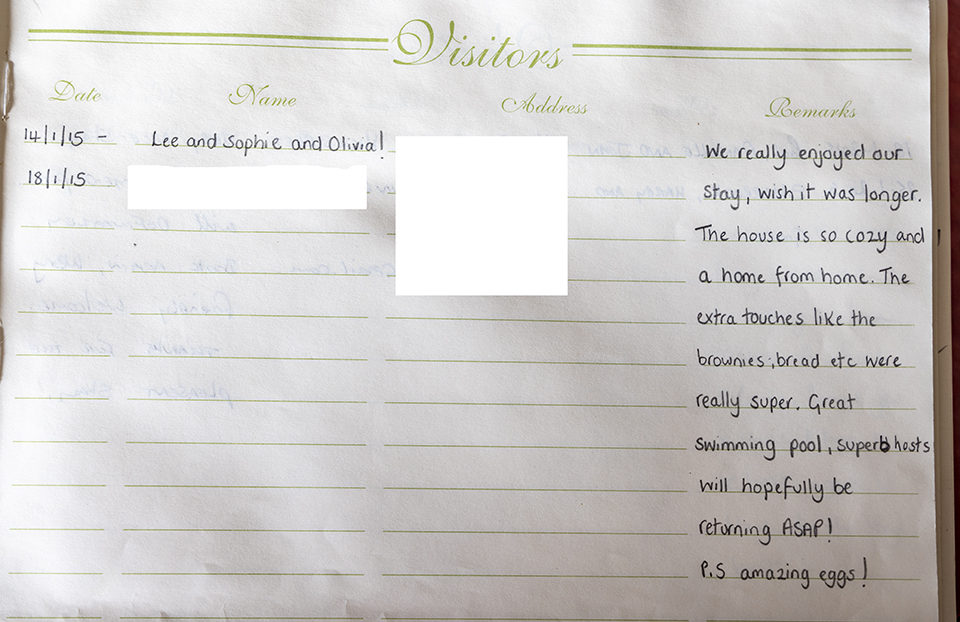 Visitors
Date Name Address Remarks
14/1/15 – Lee and Sophie and Olivia!
18/1/15
We really enjoyed our
stay, wish it was longer.
The house is so cozy and
a home from home. The
extra touches like the
brownies, bread etc were
really super. Great
swimming pool, superb hosts
will hopefully be
returning ASAP!
P.S amazing eggs!